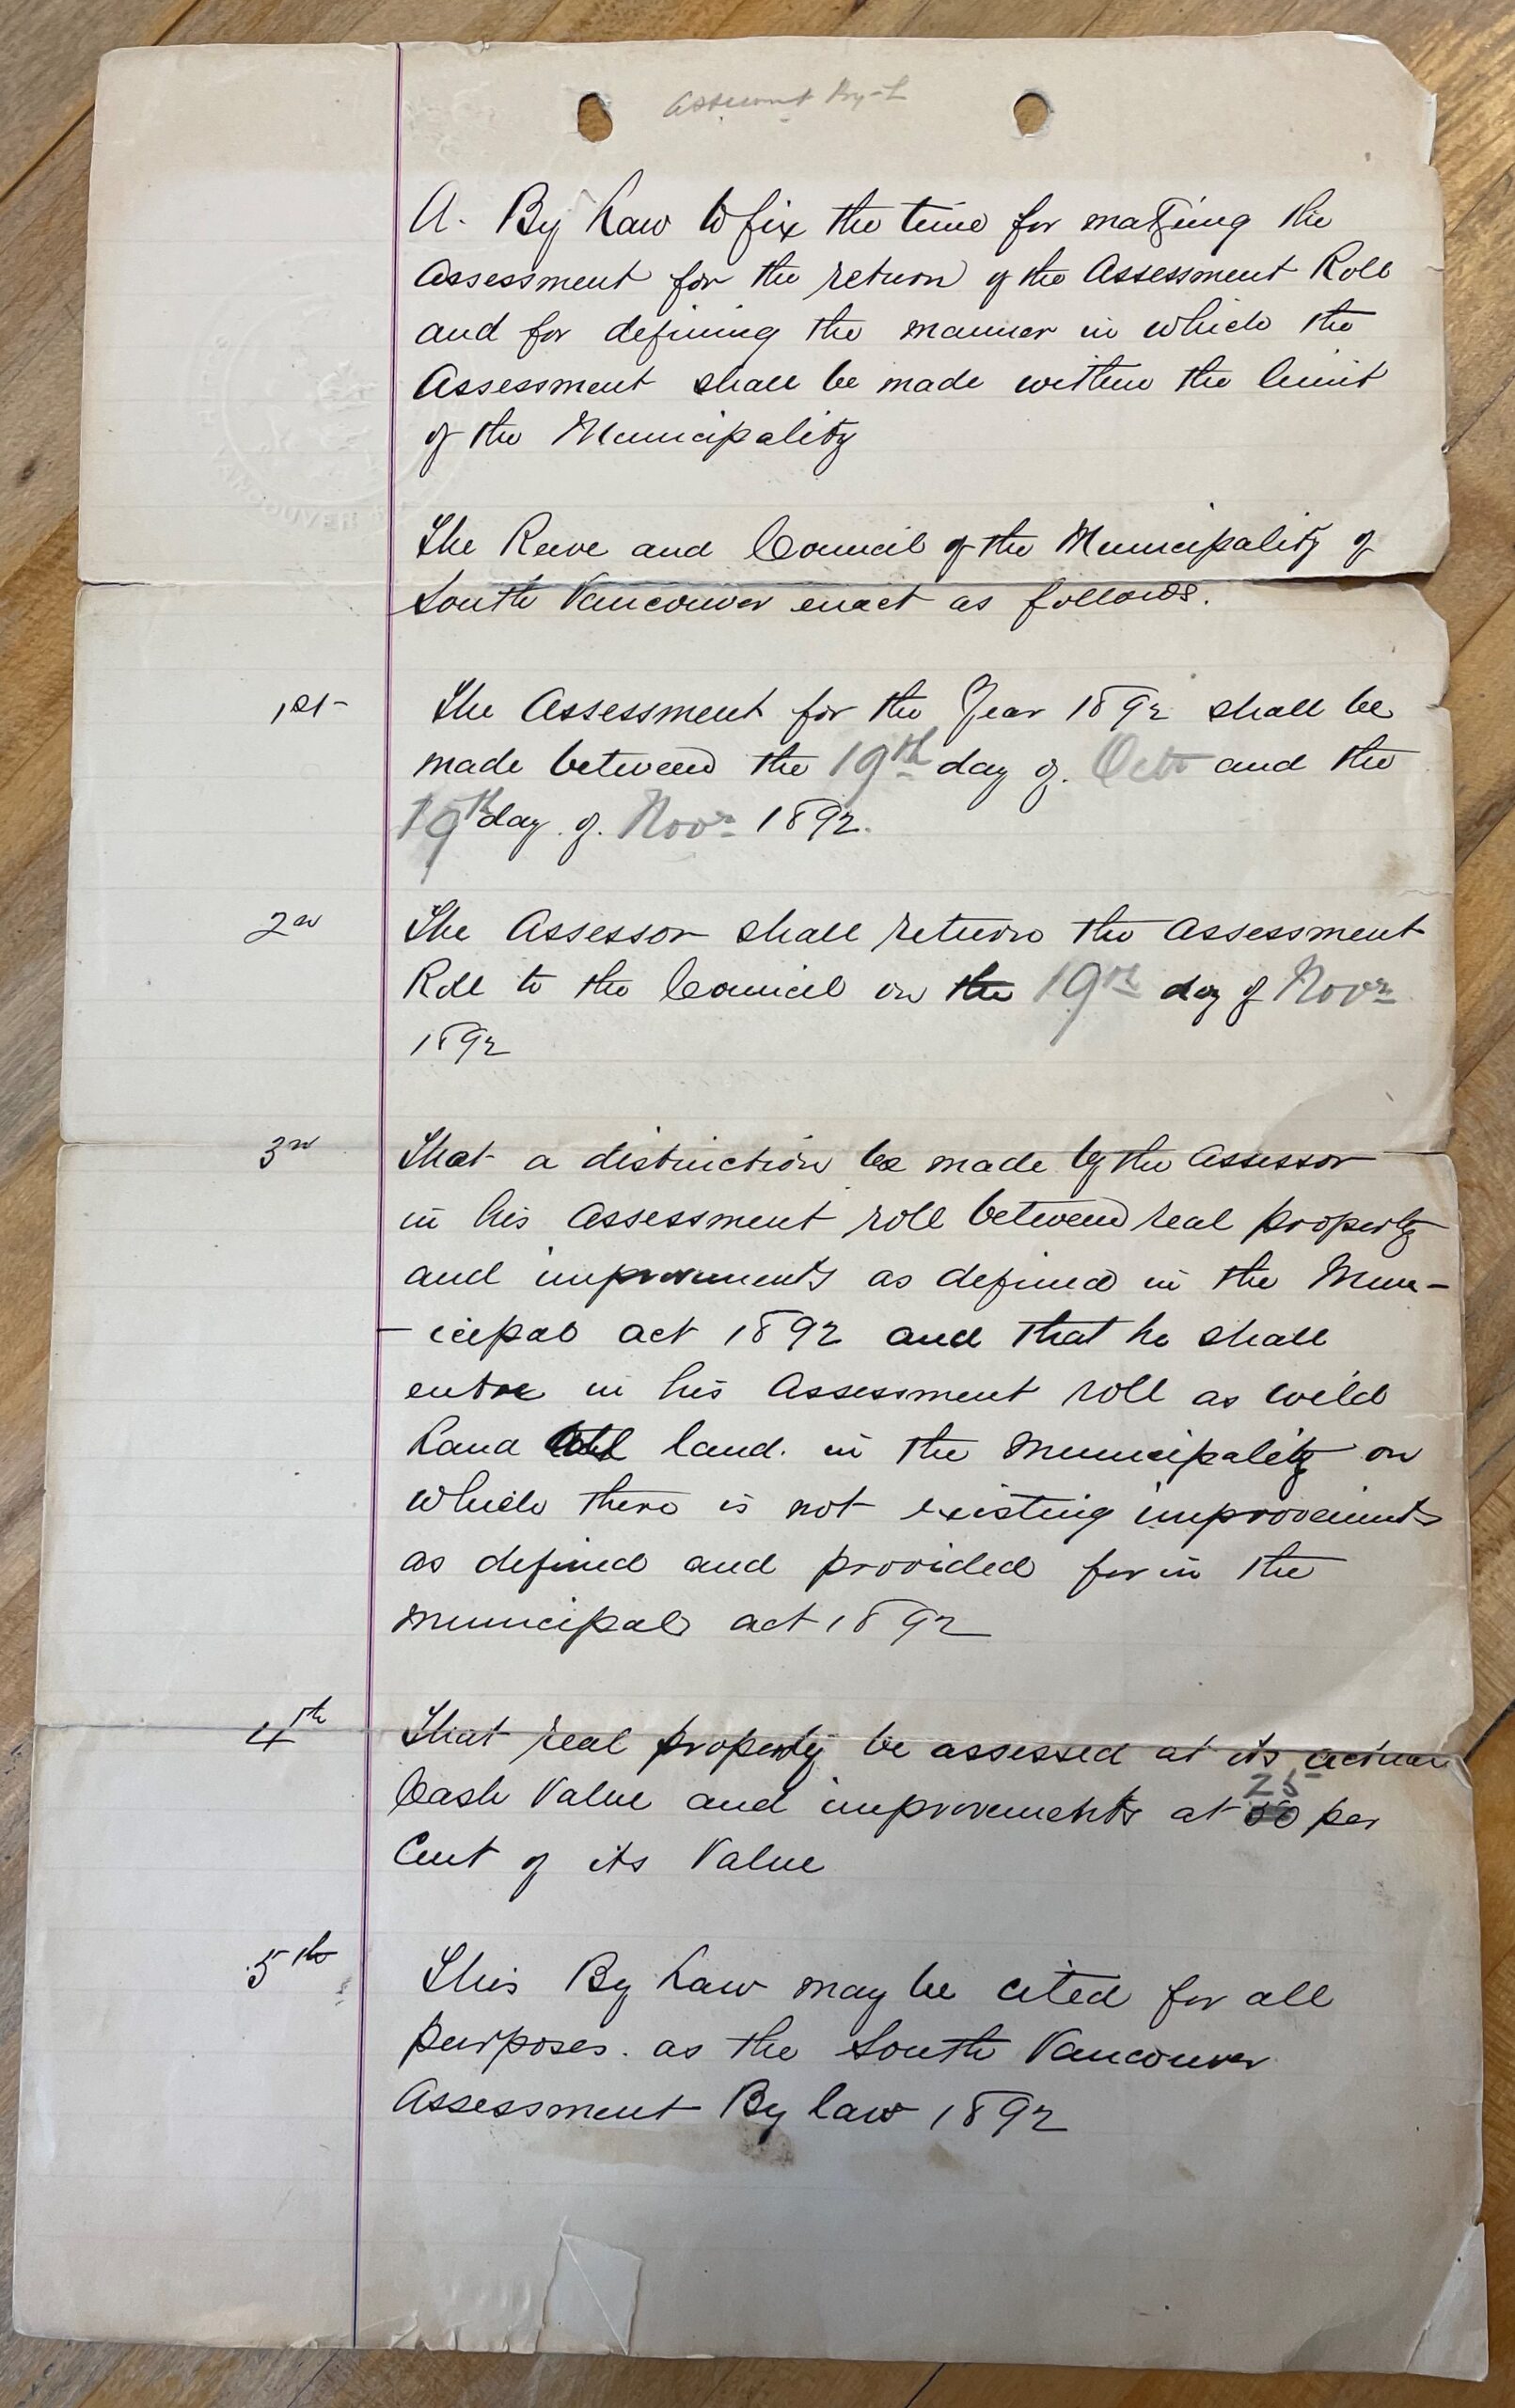 Assessment By-L
A. By Law to fix the time for making the
Assessment for the return of the Assessment Roll
and for defining the manner in which the
Assessment shall be made within the limit
of the Municipality
VANCOUVER
The Reeve and Council of the Municipality of
South Vancouver enact as follows.
1st The Assessment for the Year 1892 shall be
made between the 19th day of. Octo and the
19th day of. Novr 1892.
2nd The Assessor shall return the Assessment
Roll to the Council on the 19th day of Novr
1892
3rd That a distinction be made by the Assessor
in his Assessment roll between real property
and improvements as defined in the Mun-
-icipal act 1892 and that he shall
enter in his Assessment roll as wild
Land all land. in the Municipality on
which there is not existing improvements
as defined and provided for in the
Municipal act 1892
4th That real property be assessed at its actual
Cash Value and improvements at 25 50 per
Cent of its Value
5th This By Law may be cited for all
purposes. as the South Vancouver
Assessment By law 1892